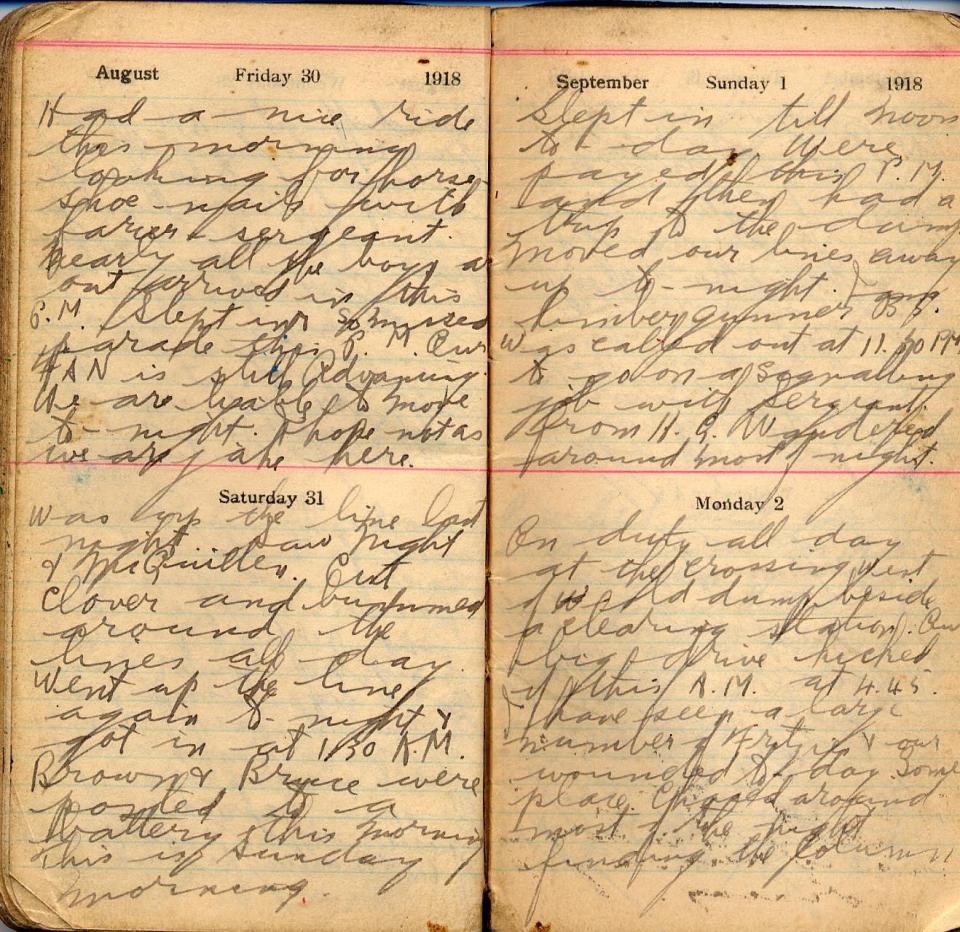 August Friday 30 1918
Had a nice ride
this morning
looking for horse
shoe nails with
farier sergeant.
Nearly all the boys
out arrived in this
P.M. Slept in & missed
parade this P. M. Our
is still Advancing.
We are liable to move
to-night. I hope not as
we are jake here.
Saturday 31
Was up the line last
night saw
& McQuillen. Cut
clover and bummed
around the
lines all day.
Went up the line
again to-night &
got in at 1.30 A.M.
Brown & Bruce were
posted to a
battery this morning
This is Sunday
morning.
September Sunday 1 1918
Slept in till noon
to-day. Were
payed this P.M.
and then had a
trip to the dump
moved our lines away
up to-night. I am
limber gunner
Was called out at 11.30 PM
to go on a signalling
job with sergeant
from H. Q. Wandered
around most of night.
Monday 2
On duty all day
at the crossing went
to old dump beside
a clearing station. Our
big drive kicked
off this A.M. at 4.45.
I have seen a large
number of Fritzie & our
wounded to-day. Some
place. Chased around
most of the night
finding the column